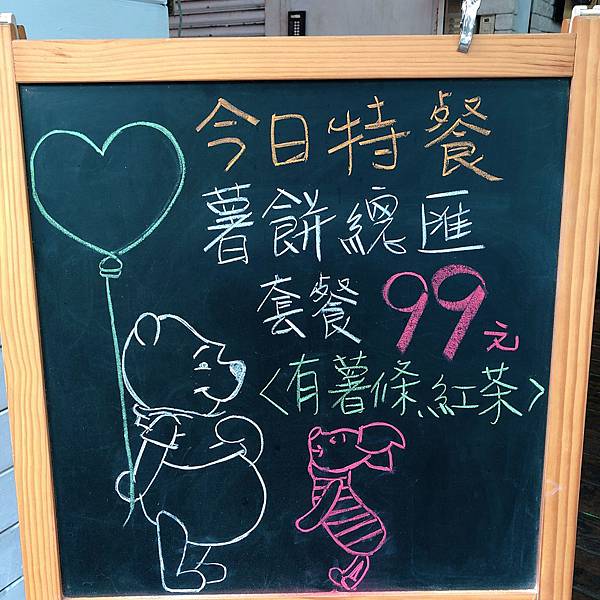 今日特餐
薯餅總匯
套餐99元
<有薯條.紅茶>